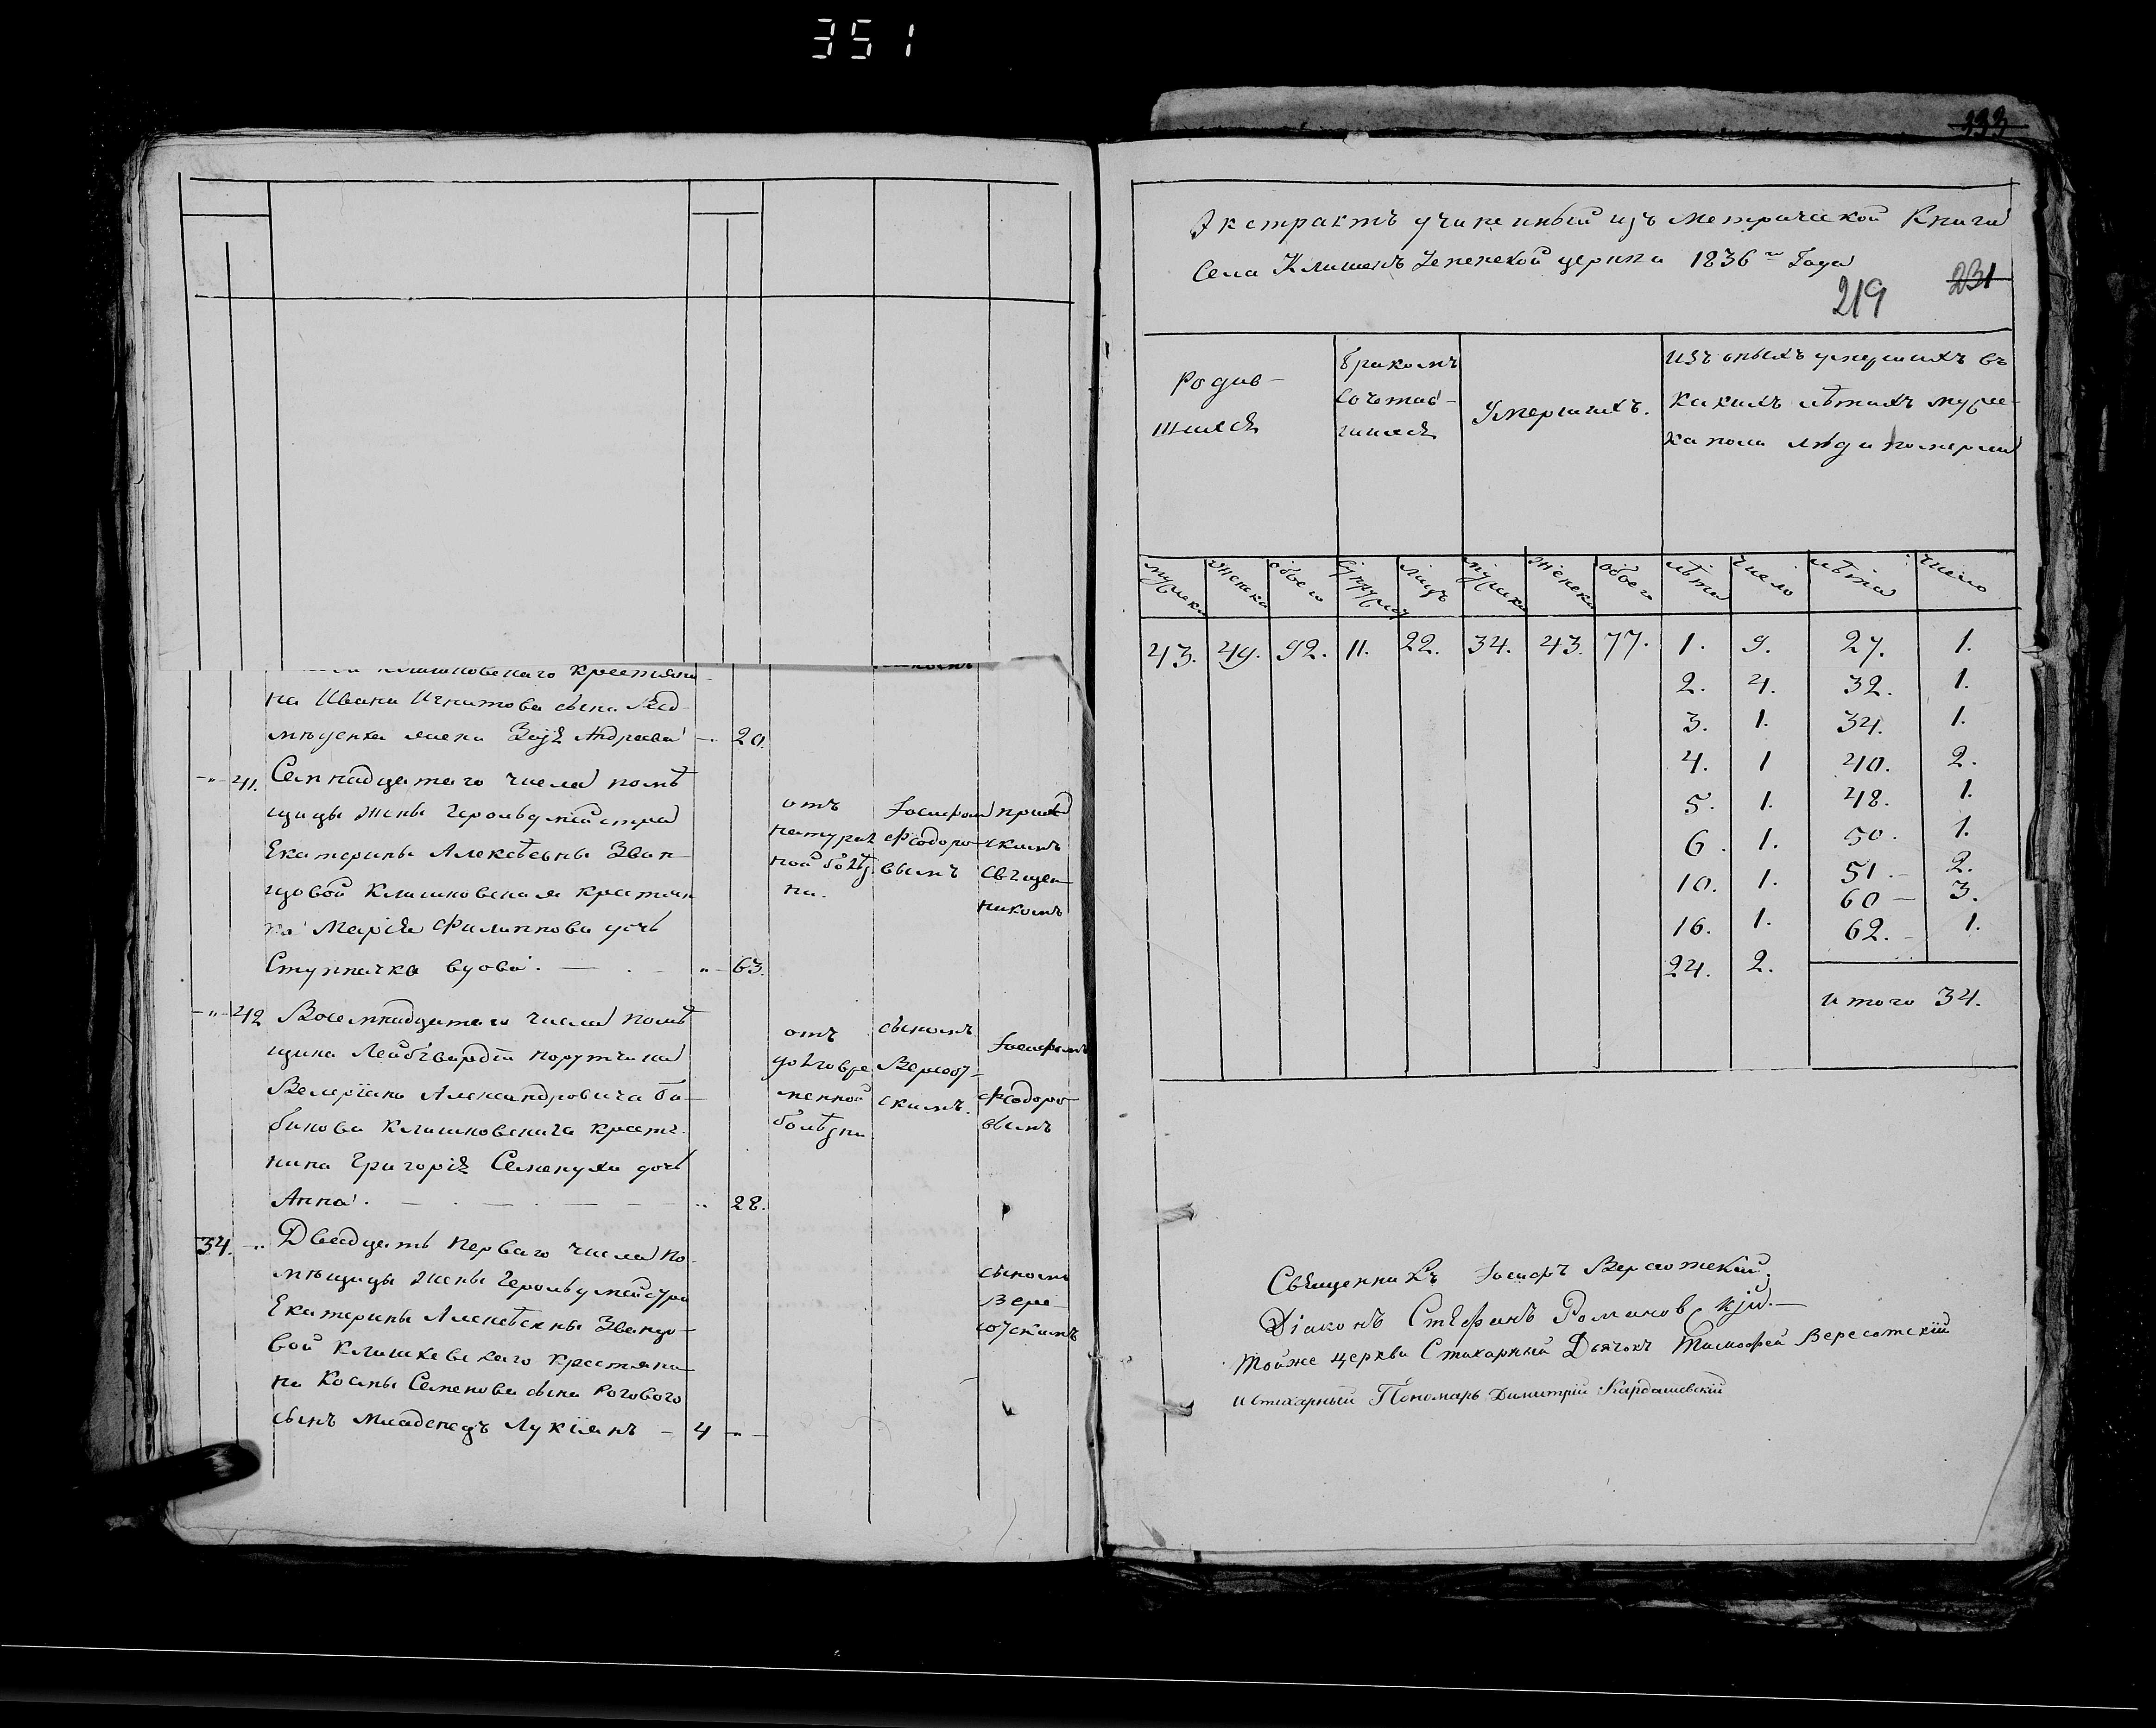 351
Клишковскаго крестьяни-
на Ивана Игнатова сына
жена Андреева -.. 20.
-"- 41. Семнадцатаго числа помѣ
щицы жены Герольдмейстра
Екатерины Алексѣевны Зван-
цовой Клишковская крестьян
ка Марія Филиппова дочь
Ступачка вдова. — "- 63.
отъ
натурал
ной болѣз
ни.
Іосифом
Феодоро-
вымъ
приход
скимъ
священ
никомъ
-"- 42 Восемнадцатаго числа помѣ
щика Лейбгвардіи порутчика
Валеріана Александровича Ба-
бикова Клишковскаго крестья
нина Григорія Семенухи дочь
Анна. — .. 28.
отъ
долговре
менной
болѣзни
сыномъ
Версот-
скимъ.
Іосифомъ
Феодоро
вымъ
34. -.. Двадцать перваго числа по-
мѣщицы жены Герольдмейстра
Екатерины Алексѣевны Званцо-
вой Клишковскаго крестьяни-
на Космы Семенова сына Рогового
сынъ младенецъ Лукіянъ - 4 -"-
сыномъ
Вере-
сотскимъ
333
Экстрактъ учиненный изъ метрической Книги
Села Клишекъ Успенской церкви 1836го Года
219 231
Родив-
шихся
бракомъ
сочетав-
шихся
Умершихъ.
изъ оныхъ умершихъ въ
какихъ лѣтахъ мужес-
ка пола люди померли
мужеска женска обоего супружъ лицъ мужеска женска обоего лѣта число лѣта число
43. 49. 92. 11. 22. 34. 43. 77. 1. 9. 27. 1.
2. 4. 32. 1.
3. 1. 34. 1.
4. 1 40. 2.
5. 1. 48. 1.
6. 1. 50. 1.
10. 1. 51. 2.
16. 1. 60 — 3.
24. 2. 62. 1.
итого 34.
Священникъ Іосифъ Версотскій.
Діаконъ Стефанъ Романовскій.—
Тойже церкви Стихарный Дьячокъ Тимофей Вересотскій
и стихарный Пономарь Димитрій Кардашевскій